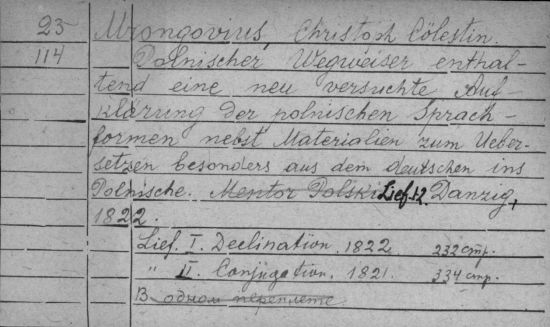 23 Mrongovius, Christoph Cölestin.
114 Polnischer Wegweiser enthal-
tend eine neu versuchte Auf-
klärung der polnischen Sprach-
formen nebst Materialien zum Ueber-
setzen besonders aus dem deutschen ins
Polnische. Mentor Polski Lief. 1.2. Danzig,
1822.
Lief. I. Declination. 1822. 232 стр.
" II. Conjugation. 1821. 334 стр.
В одном переплете.